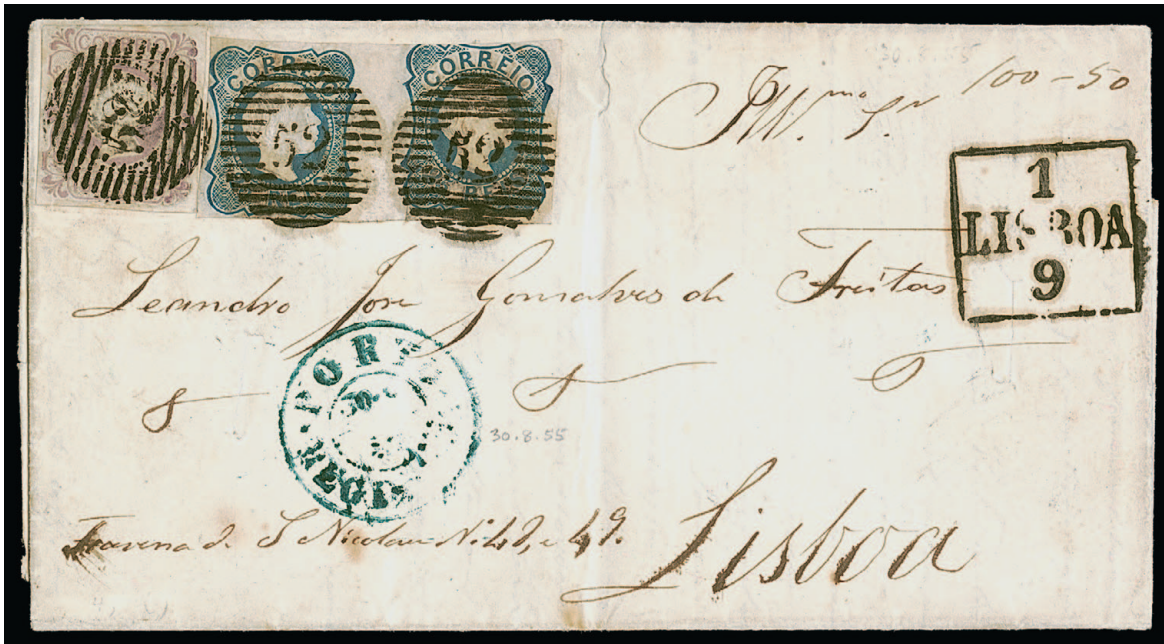 CORREIO CORREIO
52 52
30.8.55
Illmo Sr 100-50
1
LISBOA
9
Leandro Jose Gonsalves de Freitas
PORTO
30
30.8.55
REGIS
Travessa de S Nicolau Nº 48, e 49.
Lisboa